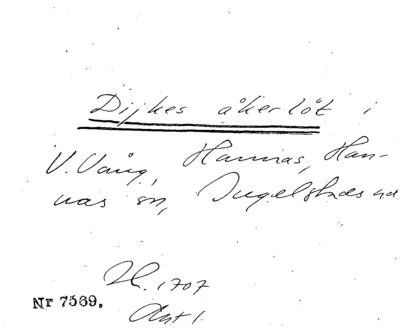 Dijkes åkerlöt i
V. Vång, Hannas, Han-
nas sn, Ingelstads hd
H. 1707
Akt 1.
Nr 7569.